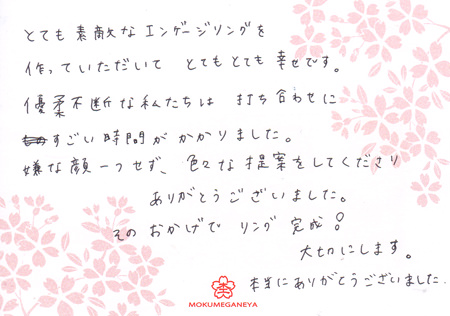 とても素敵なエンゲージリングを
作っていただいて とてもとても幸せです。
優柔不断な私たちは 打ち合わせに
すごい時間がかかりました。
嫌な顔一つせず、色々な提案をしてくださり
ありがとうございました。
そのおかげでリング完成!
大切にします。
本当にありがとうございました。
MOKUMEGANEYA